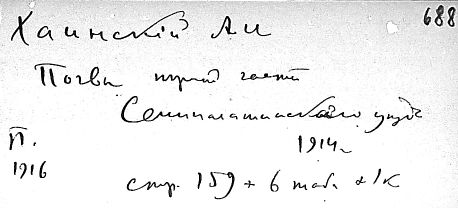 688
Хаинскій АИ
Почвы части
Семипалатинского уезда
1914 г.
П.
1916
стр. 159 + 6 таб. + 1к